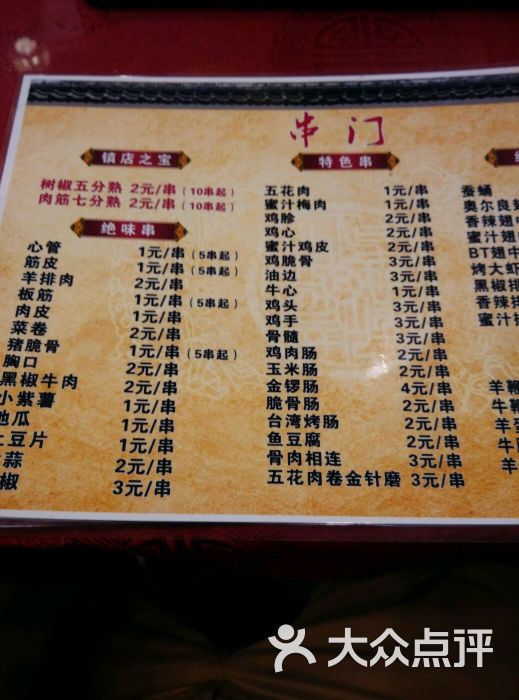 串门
镇店之宝
树椒五分熟 2元/串(10串起)
肉筋七分熟 2元/串(10串起)
绝味串
心管 1元/串(5串起)
筋皮 1元/串(5串起)
羊排肉 2元/串
板筋 1元/串(5串起)
肉皮 1元/串
菜卷 2元/串
猪脆骨 1元/串(5串起)
胸口 2元/串
黑椒牛肉 2元/串
小紫薯 1元/串
地瓜 1元/串
土豆片 1元/串
蒜 2元/串
椒 3元/串
特色串
五花肉 1元/串
蜜汁梅肉 1元/串
鸡胗 2元/串
鸡心 2元/串
蜜汁鸡皮 2元/串
鸡脆骨 3元/串
油边 3元/串
牛心 1元/串
鸡头 3元/串
鸡手 3元/串
骨髓 3元/串
鸡肉肠 2元/串
玉米肠 2元/串
金锣肠 4元/串
脆骨肠 2元/串
台湾烤肠 2元/串
鱼豆腐 2元/串
骨肉相连 3元/串
五花肉卷金针磨 3元/串
蚕蛹
奥尔良翅
香辣翅中
蜜汁翅中
BT翅中
烤大虾
黑椒排
香辣排
蜜汁排
羊鞭
牛鞭
羊蛋
牛
羊
大众点评